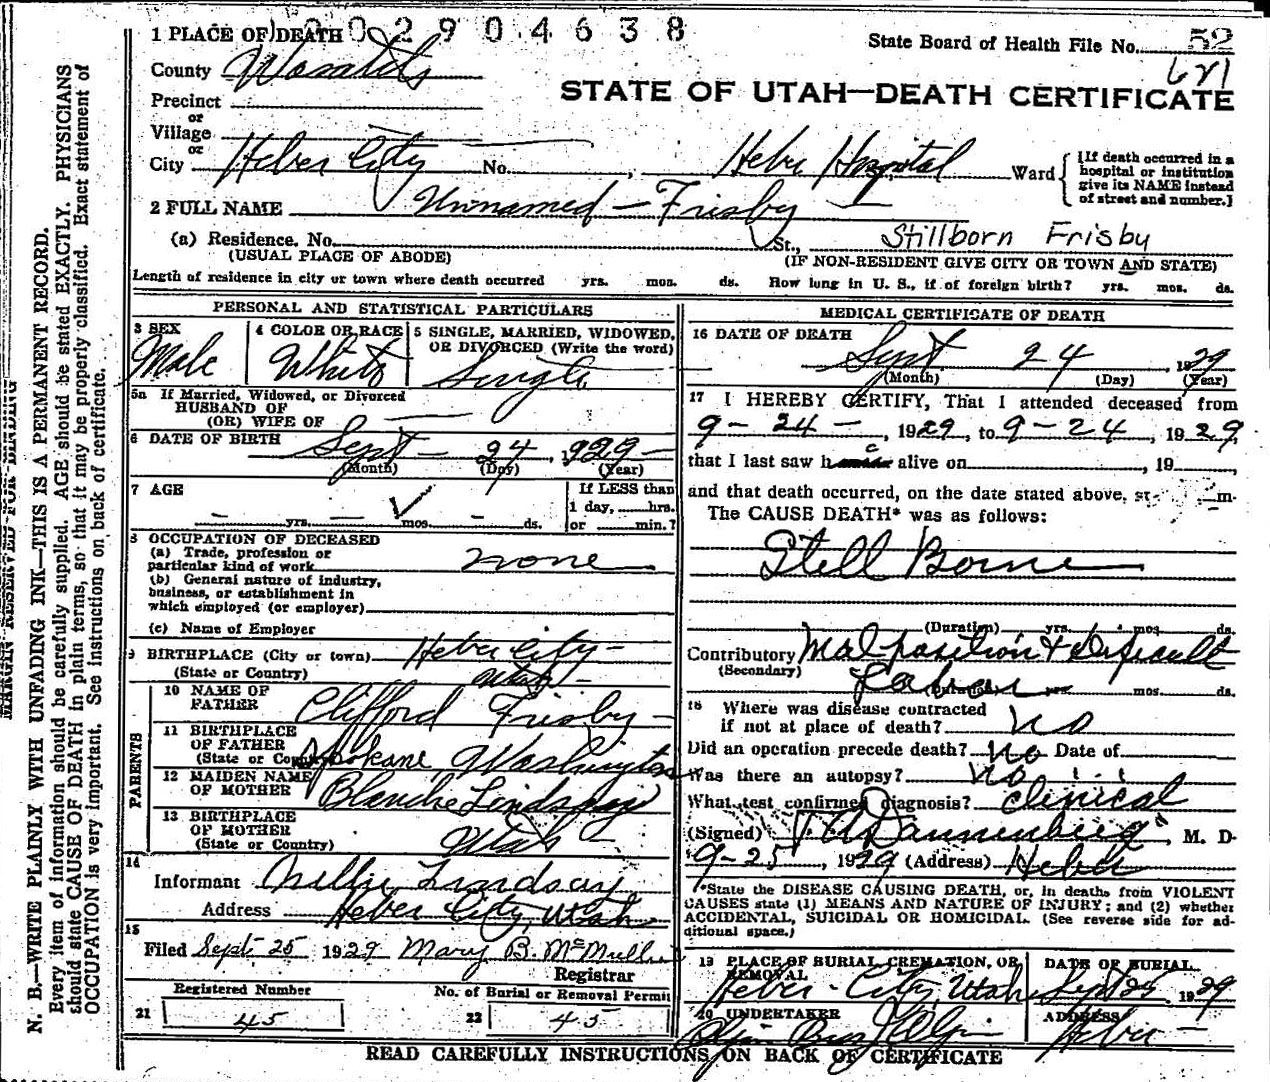 1 PLACE OF DEATH 0 0 2 9 0 4 6 3 8
State Board of Health File No. 52
621
County Wasatch
STATE OF UTAH—DEATH CERTIFICATE
Precinct
or
Village
or
City Heber City No. , Heber Hospital Ward
[If death occurred in a
hospital or institution
give its NAME instead
of street and number.]
2 FULL NAME Unnamed - Frisby
(a) Residence. No. St., Stillborn Frisby
(USUAL PLACE OF ABODE) (IF NON-RESIDENT GIVE CITY OR TOWN AND STATE)
Length of residence in city or town where death occurred yrs. mos. ds. How long in U. S., if of foreign birth? yrs. mos. ds.
PERSONAL AND STATISTICAL PARTICULARS
3 SEX
Male
4 COLOR OR RACE
White
5 SINGLE, MARRIED, WIDOWED,
OR DIVORCED (Write the word)
Single
5a If Married, Widowed, or Divorced
HUSBAND OF
(OR) WIFE OF
6 DATE OF BIRTH Sept - 24, 1929 -
(Month) (Day) (Year)
7 AGE
- yrs. - mos. - ds.
If LESS than
1 day, hrs.
or min.?
8 OCCUPATION OF DECEASED
(a) Trade, profession or
particular kind of work none
(b) General nature of industry,
business, or establishment in
which employed (or employer)
(c) Name of Employer
9 BIRTHPLACE (City or town) Heber City -
(State or Country) Utah -
PARENTS
10 NAME OF
FATHER Clifford Frisby -
11 BIRTHPLACE
OF FATHER
(State or Country) Spokane Washington
12 MAIDEN NAME
OF MOTHER Blanche Lindsay
13 BIRTHPLACE
OF MOTHER
(State or Country) Utah
14
Informant Nellie Lindsay
Address Heber City, Utah
15
Filed Sept 25 1929 Mary B. McMullin
Registrar
Registered Number
21 45
No. of Burial or Removal Permit
22 45
MEDICAL CERTIFICATE OF DEATH
16 DATE OF DEATH
Sept 24, 1929
(Month) (Day) (Year)
17 I HEREBY CERTIFY, That I attended deceased from
9 - 24 -, 1929, to 9 - 24, 1929,
that I last saw h alive on , 19 ,
and that death occurred, on the date stated above, at m.
The CAUSE DEATH* was as follows:
Still Borne
(Duration) yrs. mos. ds.
Contributory Malposition & Dificult
(Secondary) Labor
mos. ds.
18 Where was disease contracted
if not at place of death? no
Did an operation precede death? no Date of
Was there an autopsy? no
What test confirmed diagnosis? clinical
(Signed) Dannenberg, M. D.
9-25, 1929 (Address) Heber
*State the DISEASE CAUSING DEATH, or, in deaths from VIOLENT
CAUSES state (1) MEANS AND NATURE OF INJURY; and (2) whether
ACCIDENTAL, SUICIDAL OR HOMICIDAL. (See reverse side for ad-
ditional space.)
19 PLACE OF BURIAL, CREMATION, OR
REMOVAL
Heber City, Utah
DATE OF BURIAL
Sept 25 1929
20 UNDERTAKER
ADDRESS
Heber -
READ CAREFULLY INSTRUCTIONS ON BACK OF CERTIFICATE
MARGIN RESERVED FOR BINDING
N. B.—WRITE PLAINLY WITH UNFADING INK—THIS IS A PERMANENT RECORD.
Every item of information should be carefully supplied. AGE should be stated EXACTLY. PHYSICIANS
should state CAUSE OF DEATH in plain terms, so that it may be properly classified. Exact statement of
OCCUPATION is very important. See instructions on back of certificate.